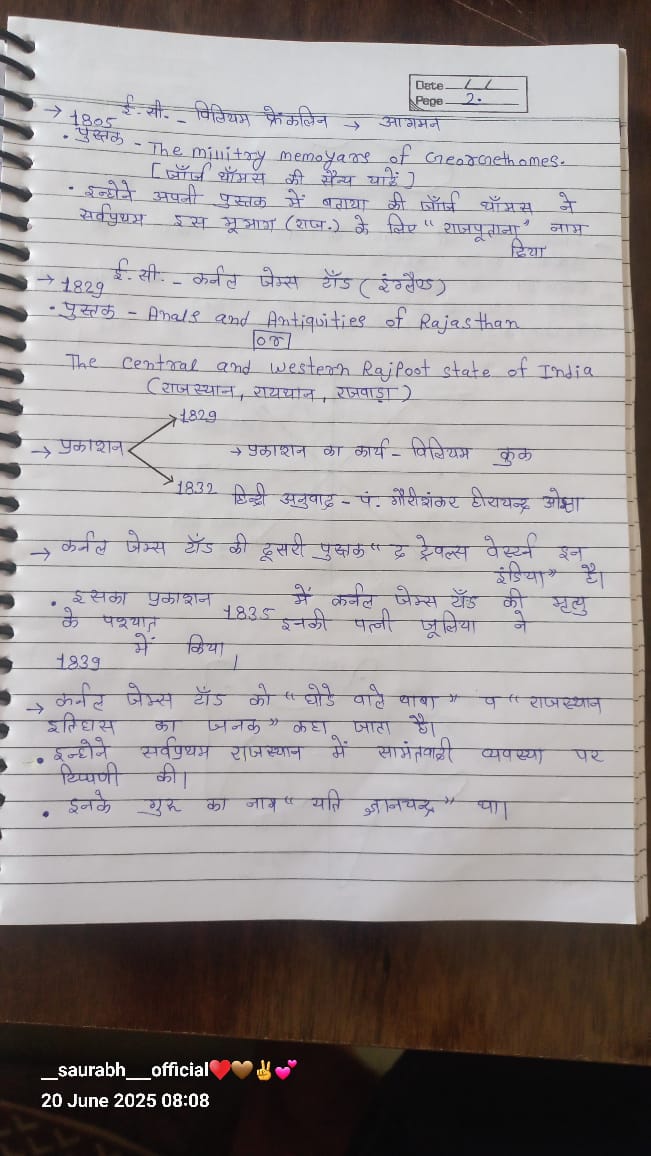 Date
Page 2.
→ 1805 ई.सी. - विलियम फ्रेंकलिन → आगमन
• पुस्तक - The millitry memoyars of Georgethomes.
[जॉर्ज थॉमस की सैन्य यादें]
• इन्होने अपनी पुस्तक में बताया की जॉर्ज थॉमस ने
सर्वप्रथम इस भूभाग (राज.) के लिए "राजपूताना" नाम
दिया
→ 1829 ई.सी. - कर्नल जेम्स टॉड (इंग्लैण्ड)
• पुस्तक - Anals and Antiquities of Rajasthan
or
The central and western Rajpoot state of India
(राजस्थान, रायथान, रजवाड़ा)
1829
→ प्रकाशन → प्रकाशन का कार्य - विलियम क्रुक
1832 हिन्दी अनुवाद - पं. गौरीशंकर हीराचन्द्र ओझा
→ कर्नल जेम्स टॉड की दूसरी पुस्तक "द ट्रेवल्स वेस्टर्न इन
इंडिया" है।
• इसका प्रकाशन 1835 में कर्नल जेम्स टॉड की मृत्यु
के पश्चात इनकी पत्नी जूलिया ने
1839 में किया।
→ कर्नल जेम्स टॉड को "घोडे वाले बाबा" व "राजस्थान
इतिहास का जनक" कहा जाता है।
• इन्होने सर्वप्रथम राजस्थान में सामंतवादी व्यवस्था पर
टिप्पणी की।
• इनके गुरू का नाम "यति ज्ञानचन्द्र" था।
__saurabh___official❤️🤎✌️💕
20 June 2025 08:08